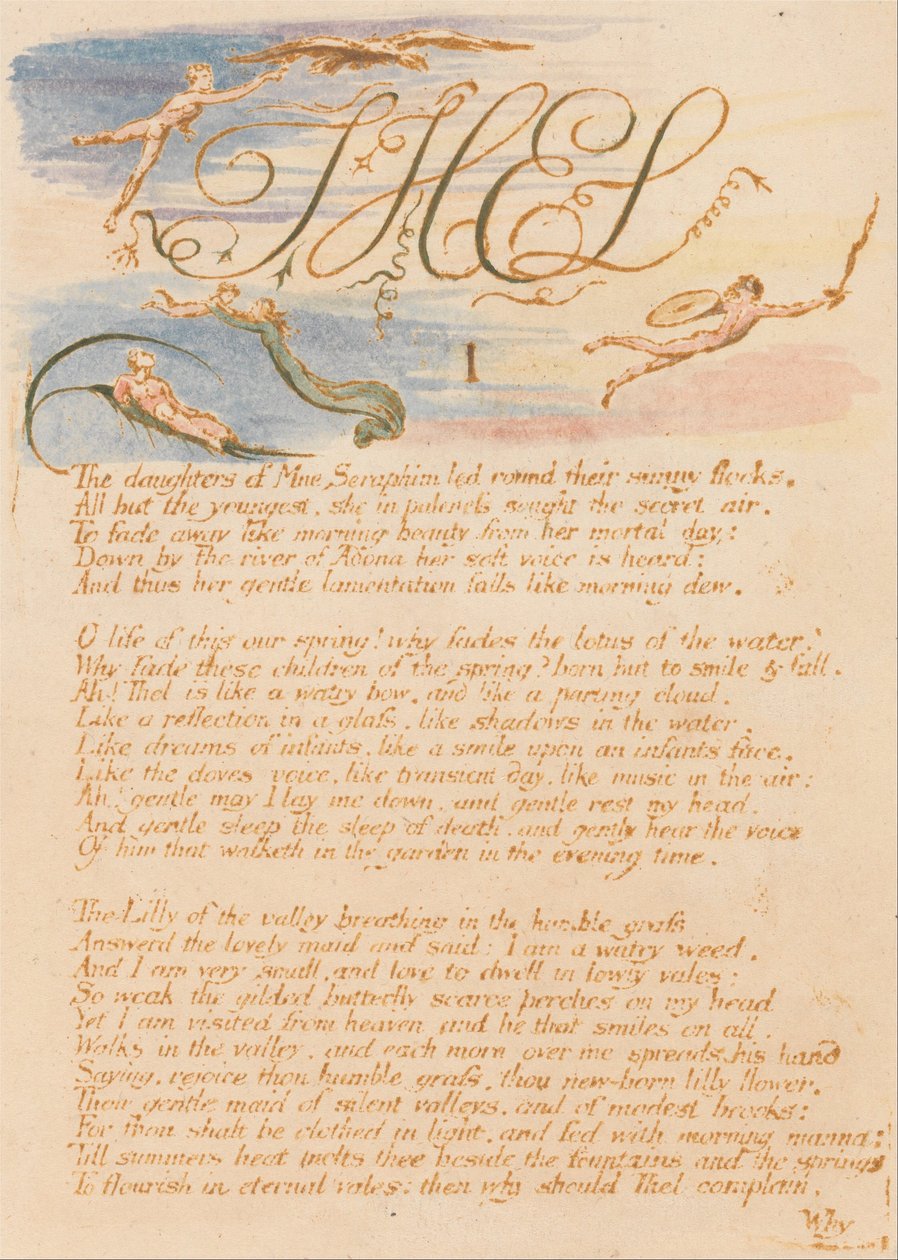 THEL
1
The daughters of Mne Seraphim led round their sunny flocks.
All but the youngest, she in paleness sought the secret air.
To fade away like morning beauty from her mortal day:
Down by the river of Adona her soft voice is heard:
And thus her gentle lamentation falls like morning dew.
O life of this our spring! why fades the lotus of the water?
Why fade these children of the spring? born but to smile & fall.
Ah! Thel is like a watry bow, and like a parting cloud.
Like a reflection in a glass, like shadows in the water.
Like dreams of infants, like a smile upon an infants face,
Like the doves voice, like transient day, like music in the air:
Ah! gentle may I lay me down, and gentle rest my head.
And gentle sleep the sleep of death, and gently hear the voice
Of him that walketh in the garden in the evening time.
The Lilly of the valley breathing in the humble grass
Answerd the lovely maid and said: I am a watry weed.
And I am very small, and love to dwell in lowly vales:
So weak the gilded butterfly scarce perches on my head
Yet I am visited from heaven and he that smiles on all.
Walks in the valley, and each morn over me spreads his hand
Saying, rejoice thou humble grass, thou new-born lilly flower,
Thou gentle maid of silent valleys, and of modest brooks:
For thou shalt be clothed in light, and fed with morning manna:
Till summers heat melts thee beside the fountains and the springs
To flourish in eternal vales: then why should Thel complain.
Why